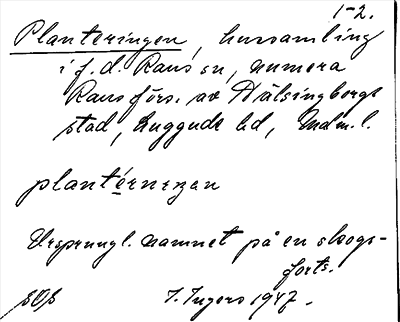 1-2.
Planteringen, hussamling
i f.d. Raus sn, numera
Raus förs. av Hälsingborgs
stad, Luggude hd, Mdm.l.
plantérnezan
Ursprungl. namnet på en skogs-
forts.
I. Ingers 1947.